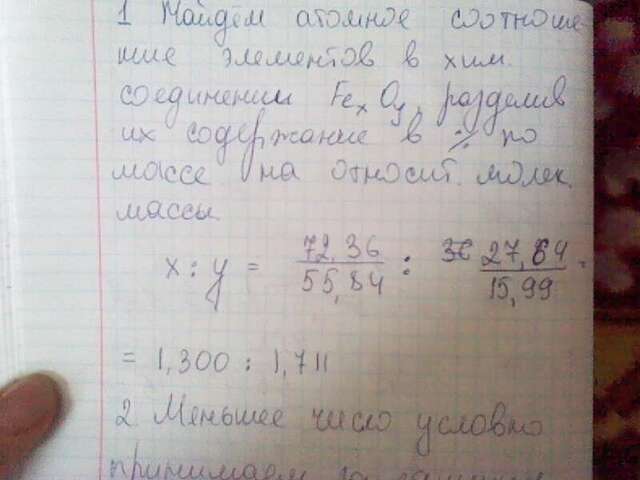 1 Найдём атомное соотноше
ние элементов в хим.
соединении FexOy, разделив
их содержание в % по
массе на относит. молек.
массы.
x : y = 72,36 / 55,84 : 27,64 / 15,99 =
= 1,300 : 1,711
2 Меньшее число условно
принимаем за